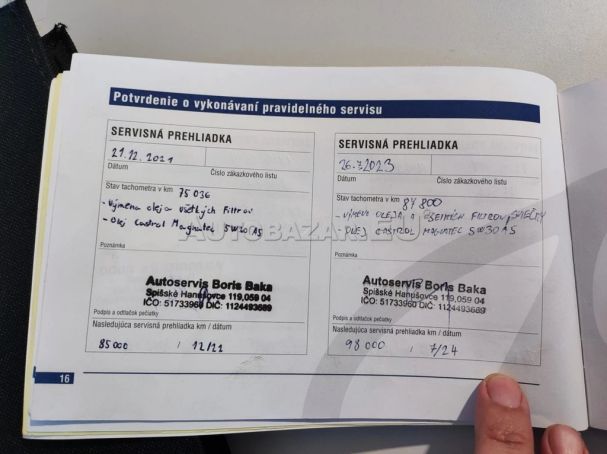 Potvrdenie o vykonávaní pravidelného servisu
SERVISNÁ PREHLIADKA
21.12.2021
Dátum
Číslo zákazkového listu
Stav tachometra v km 75 036
- Výmena oleja všetkých Filtrov
- Olej Castrol Magnatec 5W30 A5
Poznámka
Autoservis Boris Baka
Spišské Hanušovce 119,059 04
IČO: 51733960 DIČ: 1124493689
Podpis a odtlačok pečiatky
Nasledujúca servisná prehliadka km / dátum
85 000 / 12/22
SERVISNÁ PREHLIADKA
26.7.2023
Dátum
Číslo zákazkového listu
Stav tachometra v km 87 800
- VÝMENA OLEJA A FILTROV, SVIEČKY
- OLEJ CASTROL MAGNATEC 5W30 A5
Poznámka
Autoservis Boris Baka
Spišské Hanušovce 119,059 04
IČO: 51733960 DIČ: 1124493689
Podpis a odtlačok pečiatky
Nasledujúca servisná prehliadka km / dátum
98 000 / 7/24
16
AUTOBAZAR.EU